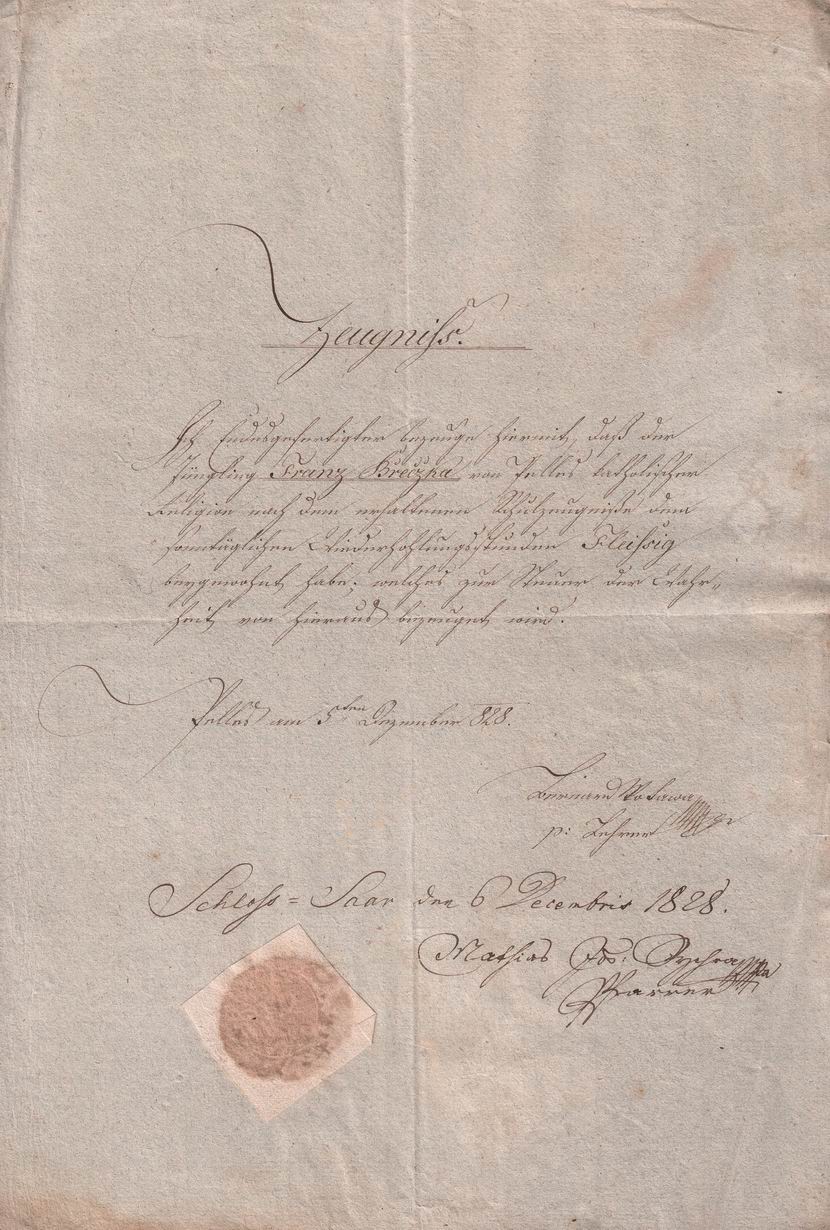 Zeugniss.
Ich Endesgefertigter bezeuge hiermit, daß der
Jüngling Franz Kreczka von Pelles katholischer
Religion nach dem erhaltenen Schulzeugniße dem
sonntäglichen Wiederhohlungsstunden Fleissig
beygewohnt habe; welches zur Steuer der Wahr-
heit von hieraus bezeuget wird.
Pelles am 5ten Dezember 828.
Bernard
p: Lehrer
Schloss = Saar den 6 Decembris 1828.
Mathias Jos:
Pfarrer